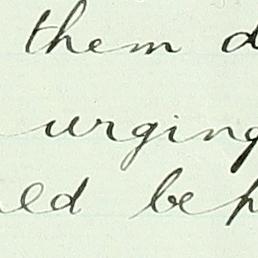 them d
urging
ed bef